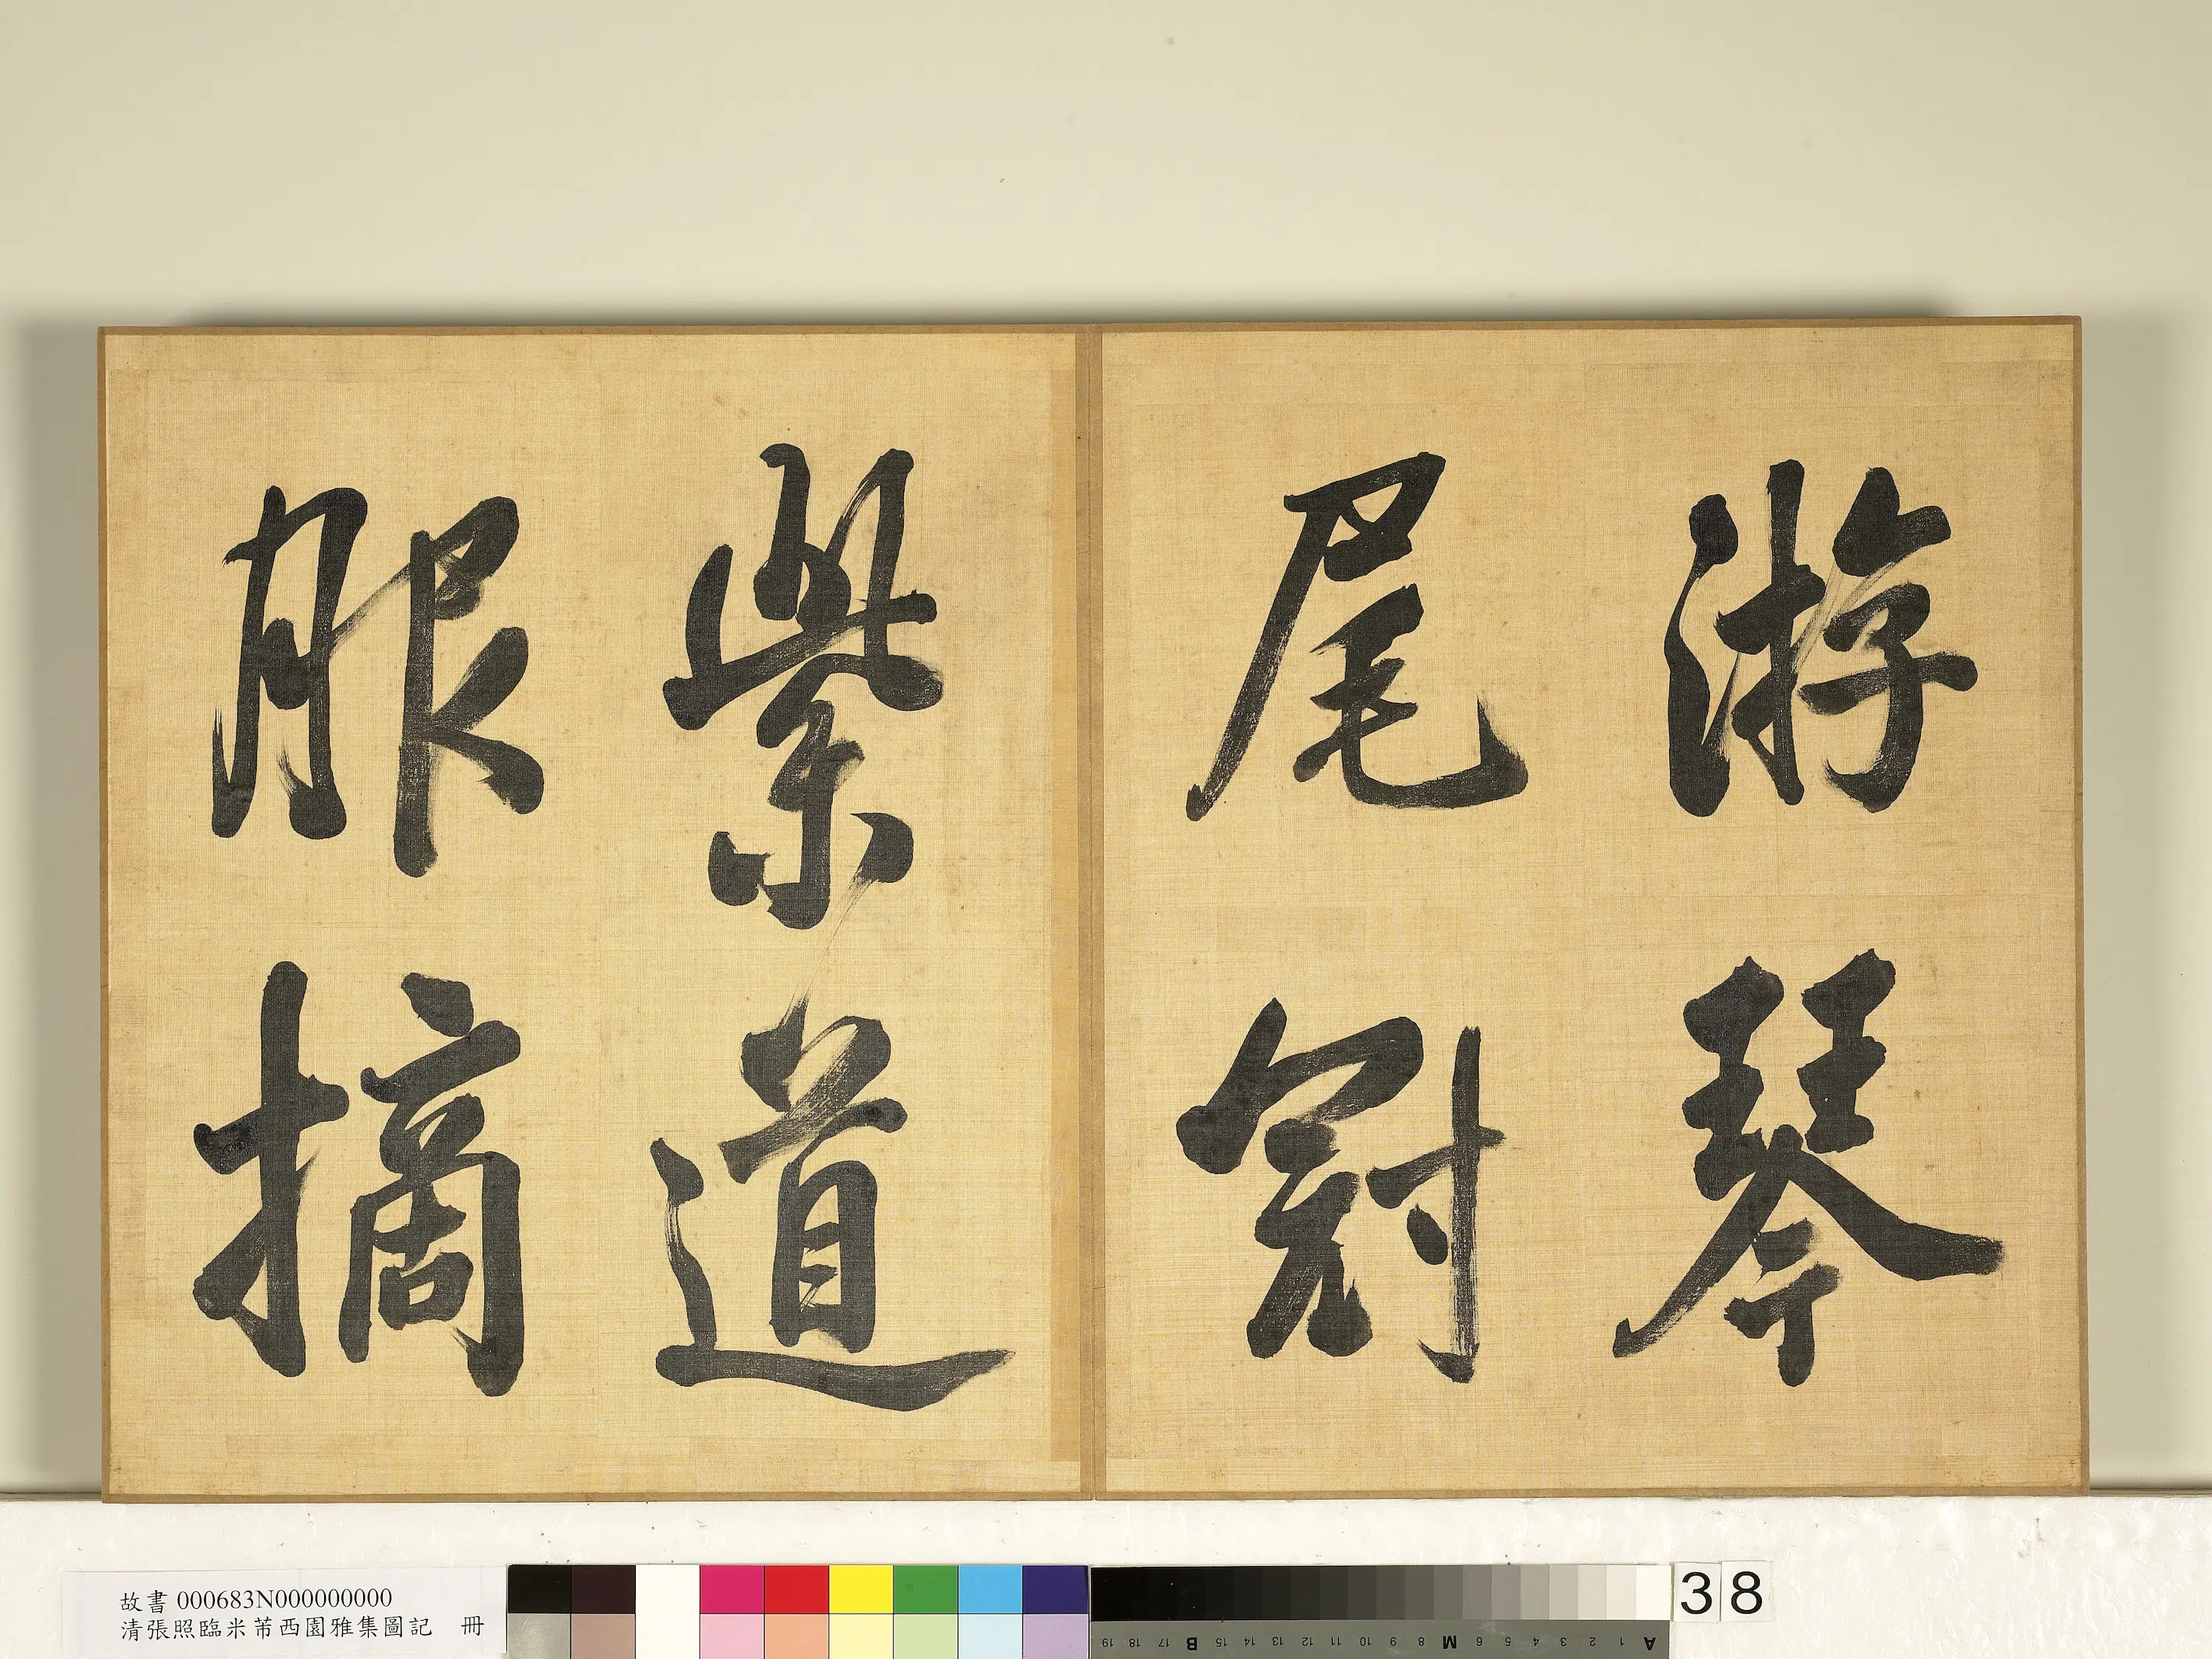 游琴
尾冠
紫道
服摘
故書 000683N000000000
清張照臨米芾西園雅集圖記 冊
38
19 18 17 B 15 14 13 12 11 10 9 8 M 6 5 4 3 2 1 A